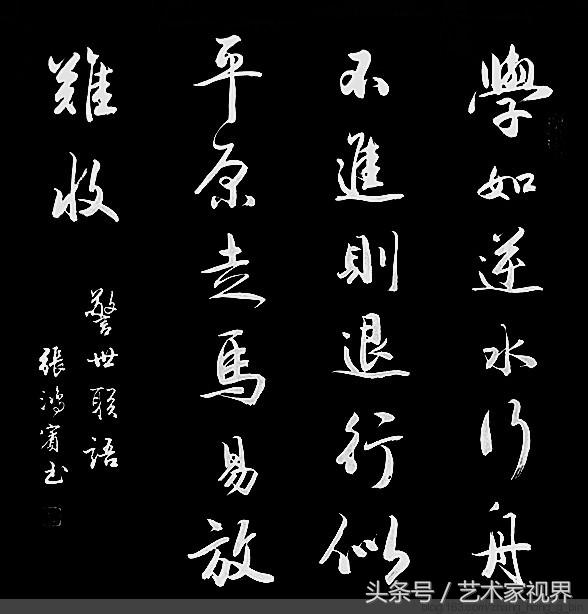 學如逆水行舟
不進則退行似
平原走馬易放
難收
警世聯語
張鴻賓書
头条号 / 艺术家视界